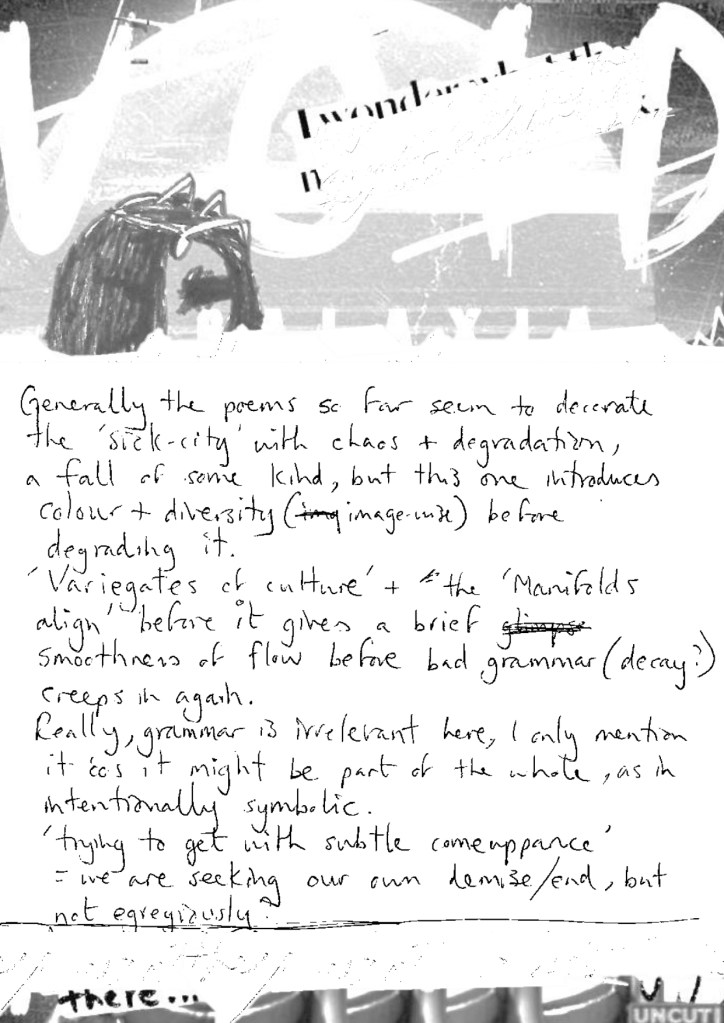 VOID
I wonder
GALAXIA
Generally the poems so far seem to decorate
the 'sick-city' with chaos + degradation,
a fall of some kind, but this one introduces
colour + diversity (img image-wise) before
degrading it.
'Variegates of culture' + the 'Manifolds
align' before it gives a brief glimpse
smoothness of flow before bad grammar (decay?)
creeps in again.
Really, grammar is irrelevant here, I only mention
it 'cos it might be part of the whole, as in
intentionally symbolic.
'trying to get with subtle comeuppance'
= we are seeking our own demise/end, but
not egregiously?
there...
UNCUT